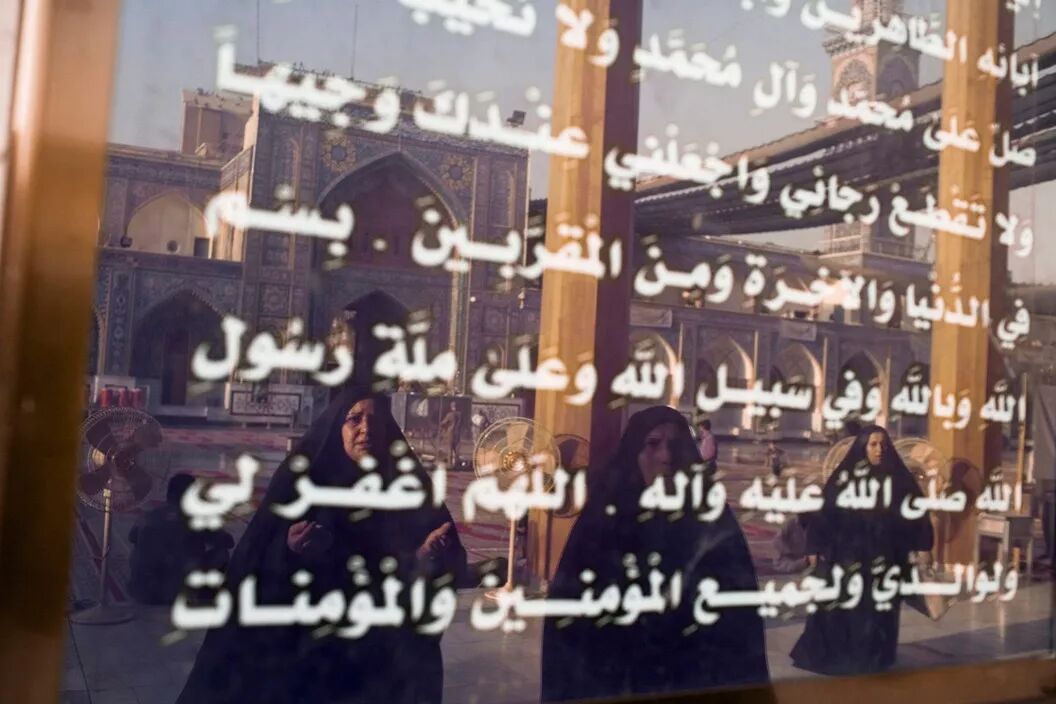 آبائه الطَّاهِرِينَ
صَلِّ عَلى مُحَمَّدٍ وَآلِ مُحَمَّدٍ وَلا
وَلا تَقْطَعْ رَجائِي وَاجْعَلْنِي عِنْـدَكَ وَجِيهاً
فِي الدُّنْيا وَالآخِرَةِ وَمِنَ الْمُقَرَّبِينَ . بِسْمِ
اللهِ وَبِاللهِ وَفِي سَبِيلِ اللهِ وَعَلىٰ مِلَّةِ رَسُولِ
اللهِ صَلَّى اللهُ عَلَيْهِ وَآلِهِ . اللّهُمَّ اغْفِـرْ لِي
وَلِوالِـدَيَّ وَلِجَمِيـعِ الْمُؤْمِنِــينَ وَالْمُؤْمِنـاتِ